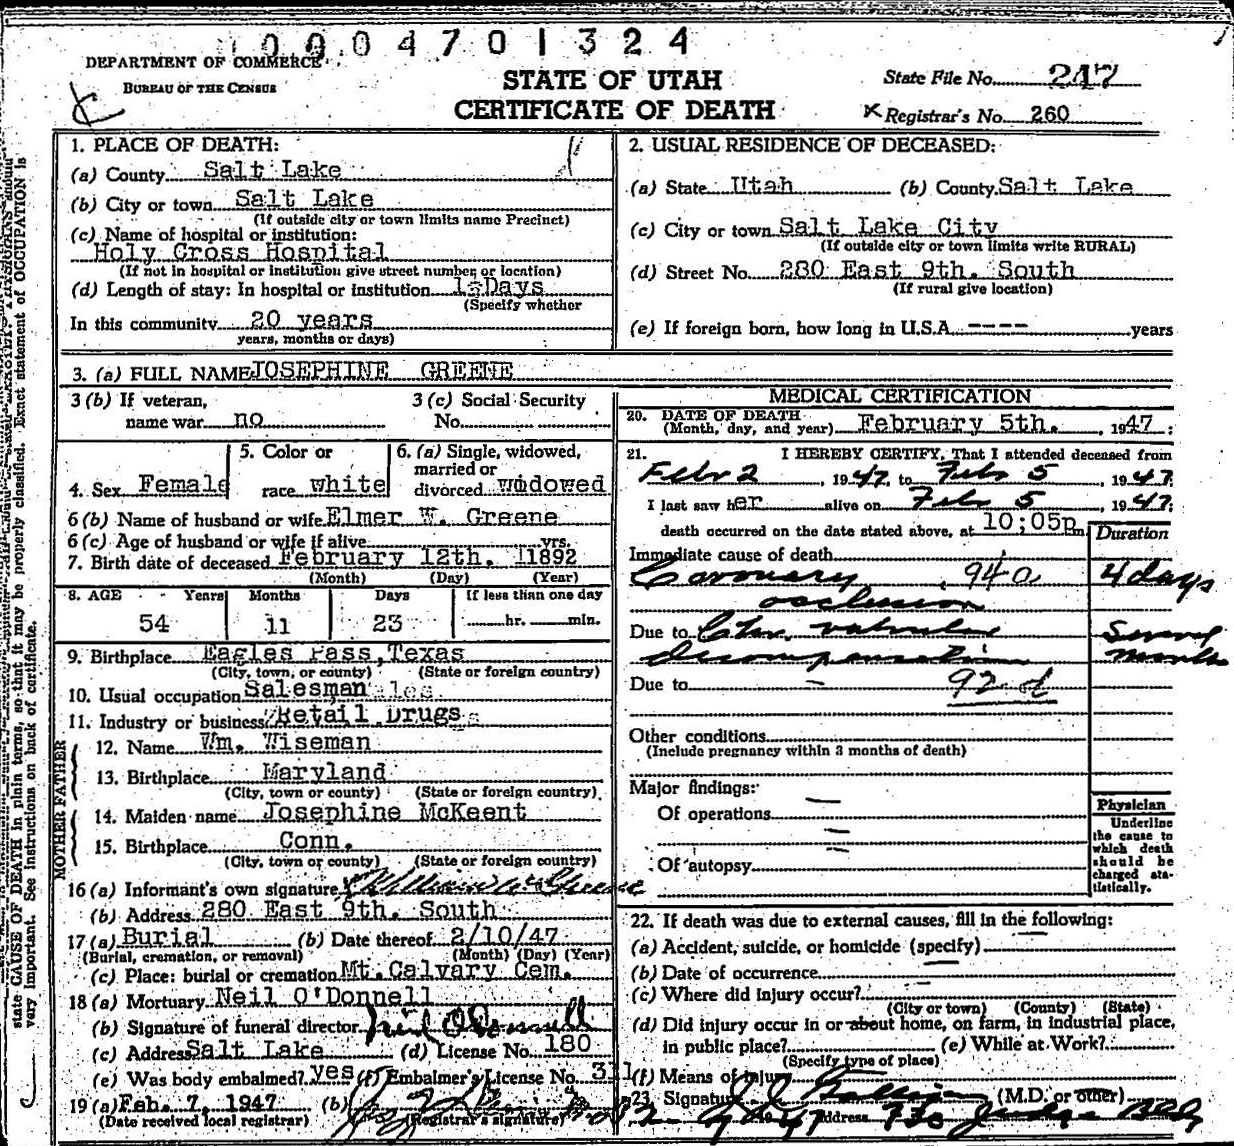 0004701324
DEPARTMENT OF COMMERCE
BUREAU OF THE CENSUS
STATE OF UTAH
CERTIFICATE OF DEATH
State File No. 247
Registrar's No. 260
1. PLACE OF DEATH:
(a) County Salt Lake
(b) City or town Salt Lake
(If outside city or town limits name Precinct)
(c) Name of hospital or institution:
Holy Cross Hospital
(If not in hospital or institution give street number or location)
(d) Length of stay: In hospital or institution Days
(Specify whether
In this community 20 years
years, months or days)
2. USUAL RESIDENCE OF DECEASED:
(a) State Utah (b) County Salt Lake
(c) City or town Salt Lake City
(If outside city or town limits write RURAL)
(d) Street No. 280 East 9th. South
(If rural give location)
(e) If foreign born, how long in U.S.A. ---- years
3. (a) FULL NAME JOSEPHINE GREENE
3 (b) If veteran, name war no
3 (c) Social Security No.
4. Sex Female
5. Color or race white
6. (a) Single, widowed, married or divorced widowed
6 (b) Name of husband or wife Elmer W. Greene
6 (c) Age of husband or wife if alive yrs.
7. Birth date of deceased February 12th. 1892
(Month) (Day) (Year)
8. AGE Years Months Days If less than one day
54 11 23 hr. min.
9. Birthplace Eagles Pass, Texas
(City, town, or county) (State or foreign country)
10. Usual occupation Salesman
11. Industry or business Retail Drugs
FATHER
12. Name Wm. Wiseman
13. Birthplace Maryland
(City, town or county) (State or foreign country)
MOTHER
14. Maiden name Josephine McKeent
15. Birthplace Conn.
(City, town or county) (State or foreign country)
16 (a) Informant's own signature William Greene
(b) Address 280 East 9th. South
17 (a) Burial (b) Date thereof 2/10/47
(Burial, cremation, or removal) (Month) (Day) (Year)
(c) Place: burial or cremation Mt. Calvary Cem.
18 (a) Mortuary Neil O'Donnell
(b) Signature of funeral director Neil O'Donnell
(c) Address Salt Lake (d) License No. 180
(e) Was body embalmed? yes (f) Embalmer's License No. 311
19 (a) Feb. 7, 1947 (b)
(Date received local registrar) (Registrar's signature)
MEDICAL CERTIFICATION
20. DATE OF DEATH
(Month, day, and year) February 5th. , 1947 ;
21. I HEREBY CERTIFY, That I attended deceased from
Febr 2 , 1947, to Feb 5 , 1947;
I last saw her alive on Feb 5 , 1947;
death occurred on the date stated above, at 10;05p m.
Duration
Immediate cause of death
Coronary 94a 4 days
occlusion
Due to Chr. valvular Several
decompensation months
Due to 92 d
Other conditions
(Include pregnancy within 3 months of death)
Major findings:
Of operations
Of autopsy
Physician
Underline
the cause to
which death
should be
charged sta-
tistically.
22. If death was due to external causes, fill in the following:
(a) Accident, suicide, or homicide (specify)
(b) Date of occurrence
(c) Where did injury occur?
(City or town) (County) (State)
(d) Did injury occur in or about home, on farm, in industrial place,
in public place? (e) While at Work?
(Specify type of place)
(f) Means of injury
23 Signature (M.D. or other)
Address 730 Judge Bldg
state CAUSE OF DEATH in plain terms, so that it may be properly classified. Exact statement of OCCUPATION is
very important. See instructions on back of certificate.